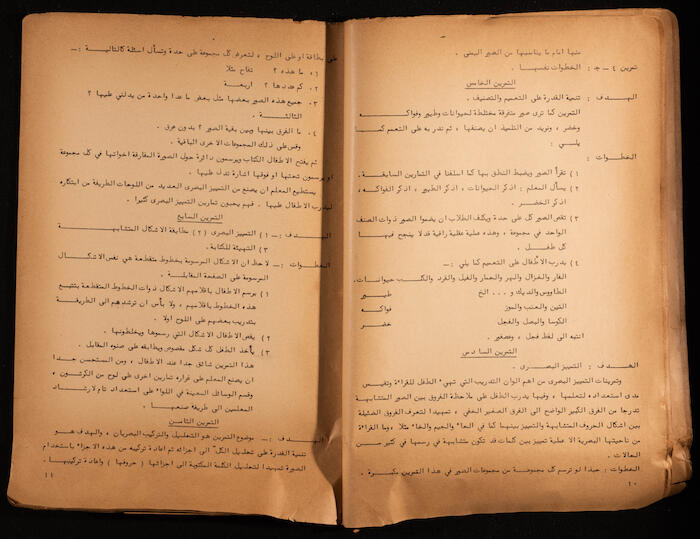 منها امام ما يناسبها من الصير اليمنى .
تمرين ٤ – جـ : الخطوات نفسها .
التمرين الخامس
الهـدف : تنمية القدرة على التعميم والتصنيف .
التمرين كما ترى صير متفرقة مختلطة لحيوانات وطيير وفواكه
وخضر ، ونريد من التلميذ ان يصنفها ، ثم ندربه على التعميم كما
يلي :
الخطوات :
١) تقرأ الصير ويضبط النطق بها كما اسلفنا في التمارين السابقة .
٢) يسأل المعلم : اذكر الحيوانات ، اذكر الطيير ، اذكر الفواكه ،
اذكر الخضر .
٣) تقص الصير كل على حدة ويكلف الطلاب ان يضموا الصير ذوات الصنف
الواحد في مجموعة ، وهذه عملية عقلية راقية قد لا ينجح فيها
كل طفل .
٤) يدرب الاطفال على التعميم كما يلي :–
الفار والغزال والهر والحمار والفيل والقرد والكلب حيوانات .
الطاووس والديك و ... الخ طيير
التين والعنب والموز فواكه
الكوسا والبصل والفجل خضر
انتبه الى لفظ فجل ، وصغير .
التمرين السادس
الهـدف : التمييز البصرى .
وتمرينات التمييز البصرى من اهم الوان التدريب التي تهيء الطفل للقراءة وتقيس
مدى استعداده لتعلمها ، وفيها يدرب الطفل على ملاحظة الفروق بين الصير المتشابهة
تدرجا من الفرق الكبير الواضح الى الفرق الصغير الخفي ، تمهيدا لتعرف الفروق الضئيلة
بين اشكال الحروف المتشابهة والتمييز بينها كما في الحاء والجيم والخاء مثلا ، وما القراءة
من ناحيتها البصرية الا عملية تمييز بين كلمات قد تكون متشابهة في رسمها في كثير من
الحالات .
الخطوات : حبذا لو ترسم كل مجموعة من مجموعات الصير في هذا التمرين مكبرة .
١٠
على بطاقة او على اللوح ، لتعرض كل مجموعة على حدة وتسأل اسئلة كالتاليـة :–
١ . ما هذه ؟ تفاح مثلا
٢ . كم عددها ؟ اربعة
٣ . جميع هذه الصير بعضها مثل بعض ما عدا واحدة من يدلني عليها ؟
الثالثـة .
٤ . ما الفرق بينها وبين بقية الصير ؟ بدون عرق .
وقس على ذلك المجموعات الاخرى الباقية .
ثم يفتح الاطفال الكتاب ويرسمون دائرة حول الصيرة المفارقة اخواتها في كل مجموعة
او يرسمون تحتها او فوقها اشارة تدل عليها .
يستطيع المعلم ان يصنع من التمييز البصرى العديد من اللوحات الطريفة من ابتكاره
ليدرب الاطفال عليها . فهم يحبون تمارين التمييز البصرى كثيرا .
التمرين السابع
الهـدف :– ١) التمييز البصرى (٢) مطابقة الاشكال المتشابهة
٣) التهيئة للكتابة .
الخطوات :– لاحظ ان الاشكال المرسومة بخطوط متقطعة هي نفس الاشكال
المرسومة على الصفحة المقابلة .
١) يرسم الاطفال باقلامهم الاشكال ذوات الخطوط المتقطعة بتتبع
هذه الخطوط باقلامهم ، ولا بأس ان ترشدهم الى الطريقة
بتدريب بعضهم على اللوح اولا .
٢) يقص الاطفال الاشكال التي رسموها ويخلطونها .
٣) يأخذ الطفل كل شكل مقصوص ويطابقه على صنوه المقابل .
هذا التمرين شائق جدا عند الاطفال ، ومن المستحسن جدا
ان يصنع المعلم على غراره تمارين اخرى على لوح من الكرتون ،
وقسم الوسائل المعينة في اللواء على استعداد تام لارشاد
المعلمين الى طريقة صنعها .
التمرين الثامن
الهـدف :– موضوع التمرين هو التحليل والتركيب البصريان ، والهدف هو
تنمية القدرة على تحليل الكل الى اجزائه ثم اعادة تركيبه من هذه الاجزاء باستخدام
الصيرة تمهيدا لتحليل الكلمة المكتوبة الى اجزائها ( حروفها ) واعادة تركيبها .
١١